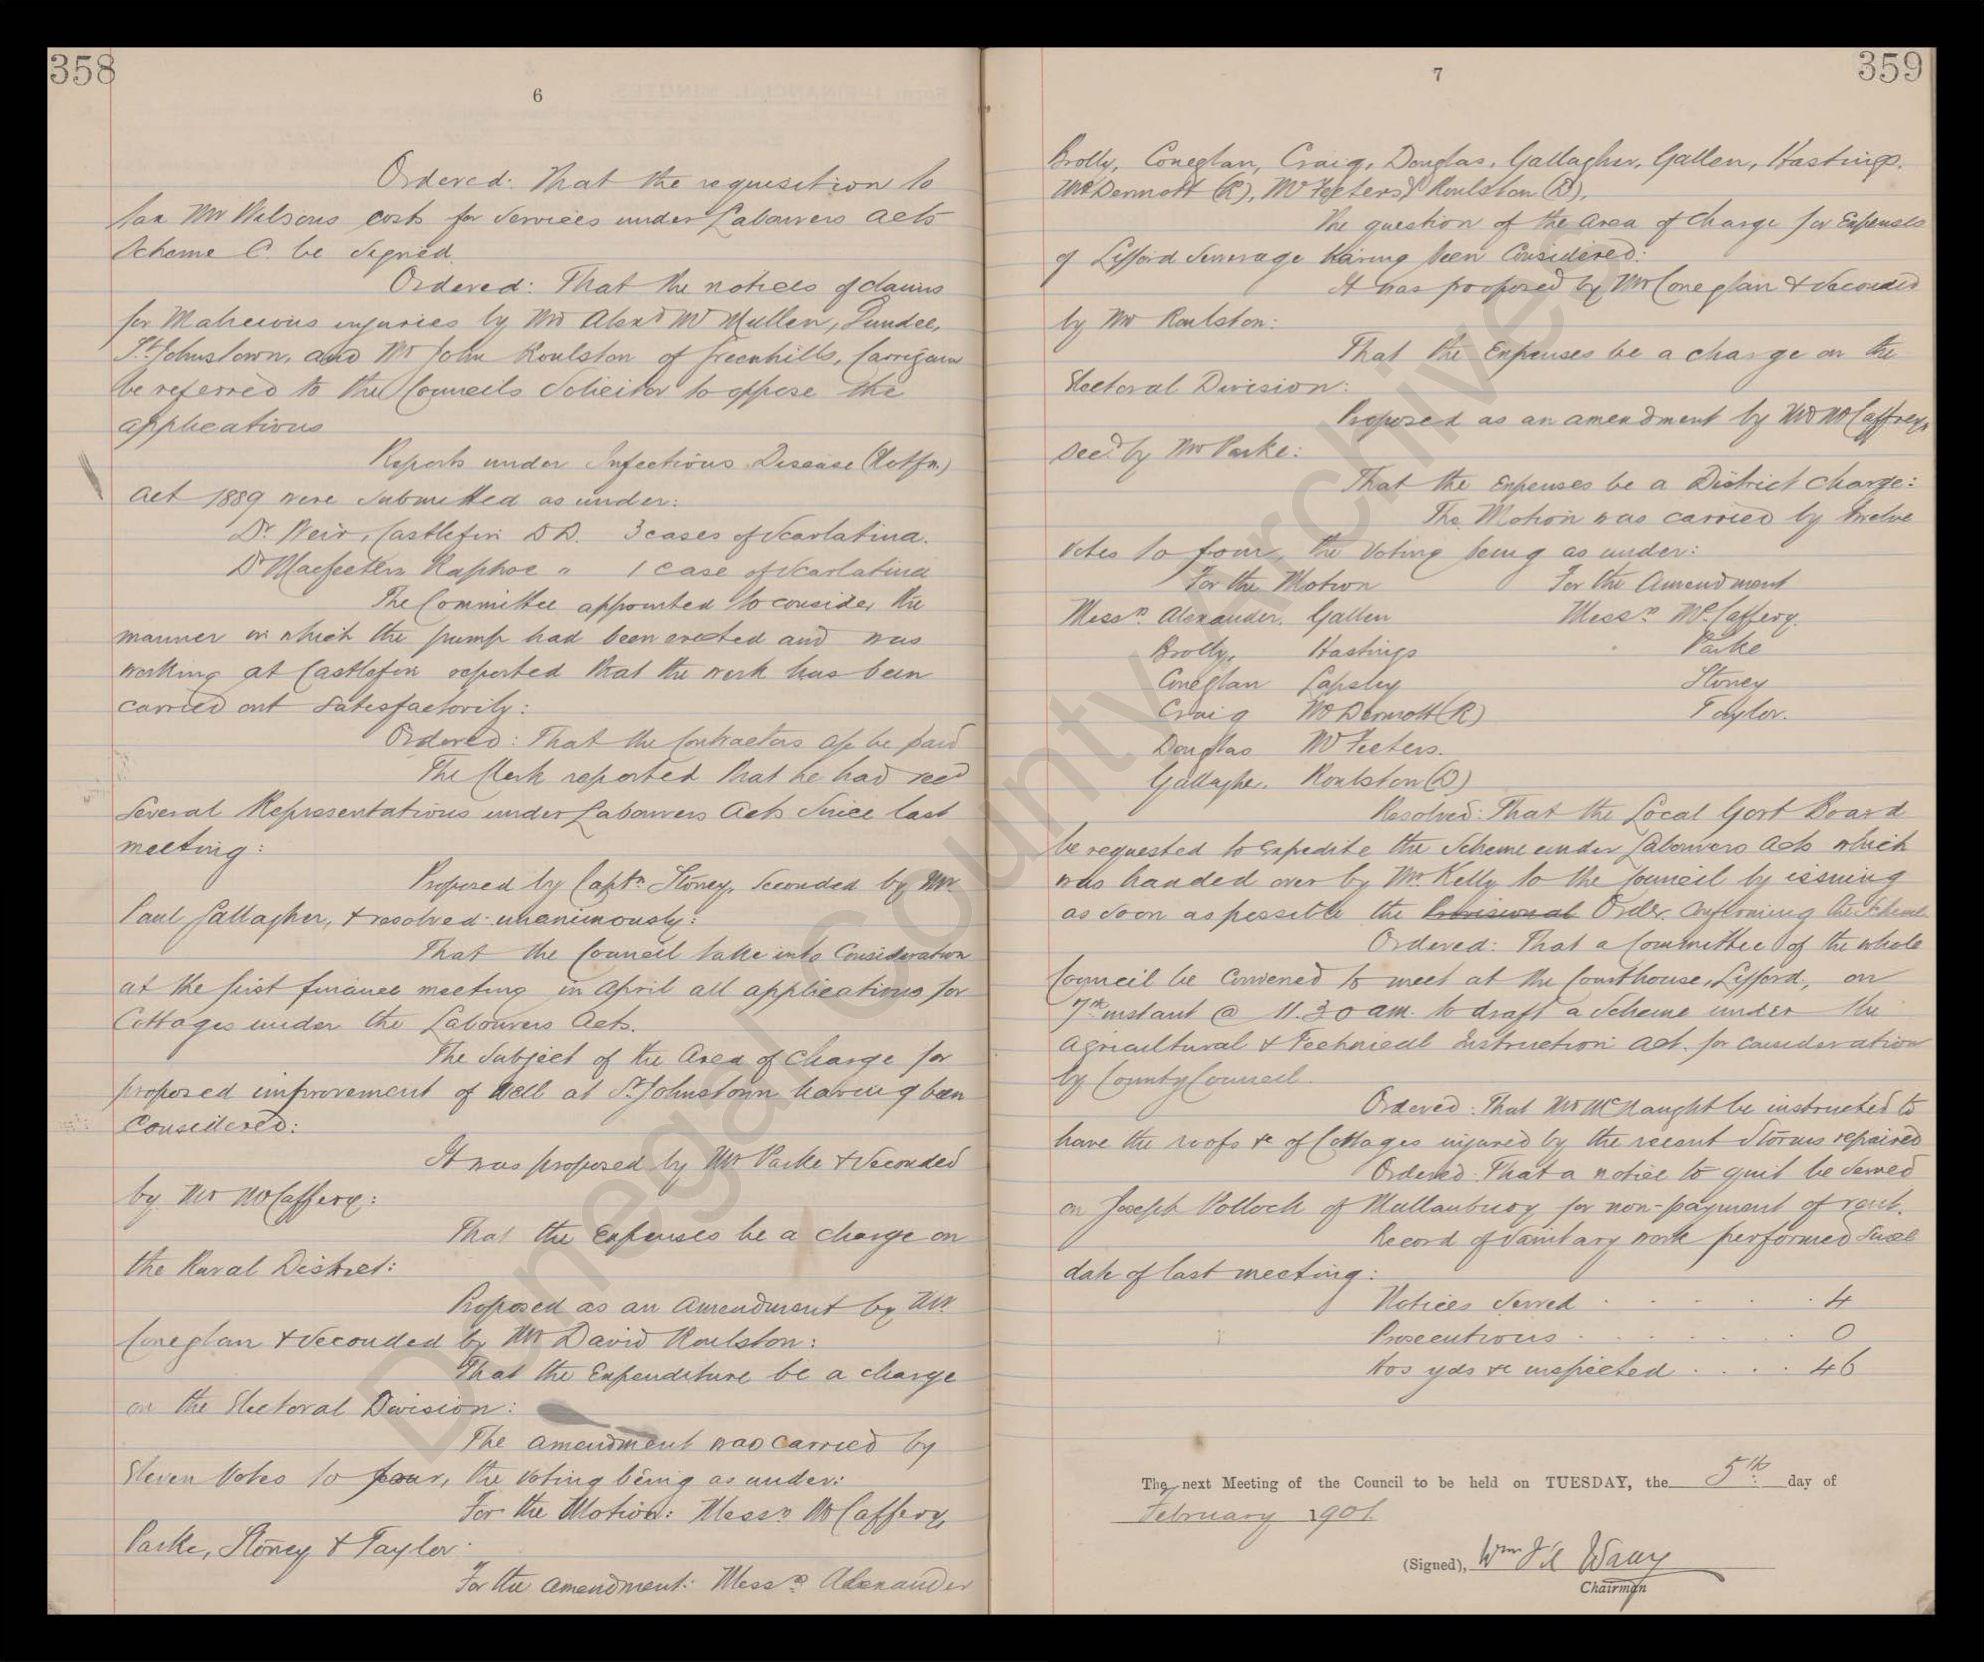 358
6
Ordered: That the requisition to
tax Mr Wilsons costs for services under Labourers Acts
Scheme C. be signed.
Ordered: That the notices of claims
for Malicious injuries by Mr Alexr McMullen, Dundee,
St Johnstown, and Mr John Roulston of Greenhills, Carrigans
be referred to the Councils Solicitor to oppose the
applications
Reports under Infectious Disease (Notfn)
Act 1889 were submitted as under:
Dr Weir, Castlefin D.D. 3 cases of Scarlatina.
Dr MacFeeters Raphoe " 1 case of Scarlatina
The Committee appointed to consider the
manner in which the pump had been erected and was
working at Castlefin reported that the work has been
carried out satisfactorily:
Ordered: That the Contractors a/c be paid
The Clerk reported that he had recd
several Representations under Labourers Acts since last
meeting:
Proposed by Captn Stoney, seconded by Mr
Paul Gallagher, & resolved unanimously:
That the Council take into Consideration
at the first finance meeting in April all applications for
Cottages under the Labourers Acts.
The subject of the Area of Charge for
proposed improvement of well at St Johnstown having been
Considered:
It was proposed by Mr Parke & Seconded
by Mr McCaffery:
That the Expenses be a charge on
the Rural District:
Proposed as an Amendment by Mr
Coneglan & Seconded by Mr David Roulston:
That the Expenditure be a charge
on the Electoral Division:
The amendment was carried by
Eleven Votes to four, the voting being as under:
For the Motion: Messrs McCaffery,
Parke, Stoney & Taylor.
For the Amendment: Messrs Alexander
359
7
Brolly, Coneglan, Craig, Douglas, Gallagher, Gallen, Hastings,
McDermott (R), McFeeters & Roulston (D).
The question of the Area of Charge for Expenses
of Lifford Sewerage having been Considered:
It was proposed by Mr Coneglan & Seconded
by Mr Roulston:
That the Expenses be a charge on the
Electoral Division:
Proposed as an amendment by Mr McCaffrey,
Secd by Mr Parke:
That the Expenses be a District charge:
The Motion was carried by twelve
Votes to four, the Voting being as under:
For the Motion For the Amendment
Messrs Alexander, Gallen Messrs McCaffery.
Brolly, Hastings Parke
Coneglan Lapsley Stoney
Craig McDermott (R) Taylor.
Douglas McFeeters.
Gallagher. Roulston (D)
Resolved: That the Local Govt Board
be requested to expedite the Scheme under Labourers Acts which
was handed over by Mr Kelly to the Council by issuing
as soon as possible the Provisional Order Confirming the Scheme
Ordered: That a Committee of the whole
Council be Convened to meet at the Courthouse, Lifford, on
7th instant @ 11.30 am. to draft a Scheme under the
Agricultural & Technical Instruction Act. for consideration
by County Council.
Ordered: That Mr McNaught be instructed to
have the roofs &c of Cottages injured by the recent Storms repaired
Ordered: That a notice to quit be served
on Joseph Pollock of Mullanbuoy for non-payment of rent.
Record of Sanitary work performed since
date of last meeting:
Notices served . . . . . 4
Prosecutions . . . . . 0
Hos yds &c inspected . . . . 46
The next Meeting of the Council to be held on TUESDAY, the 5th day of
February 1901.
(Signed), Wm J H Wray
Chairman
Donegal County Archives